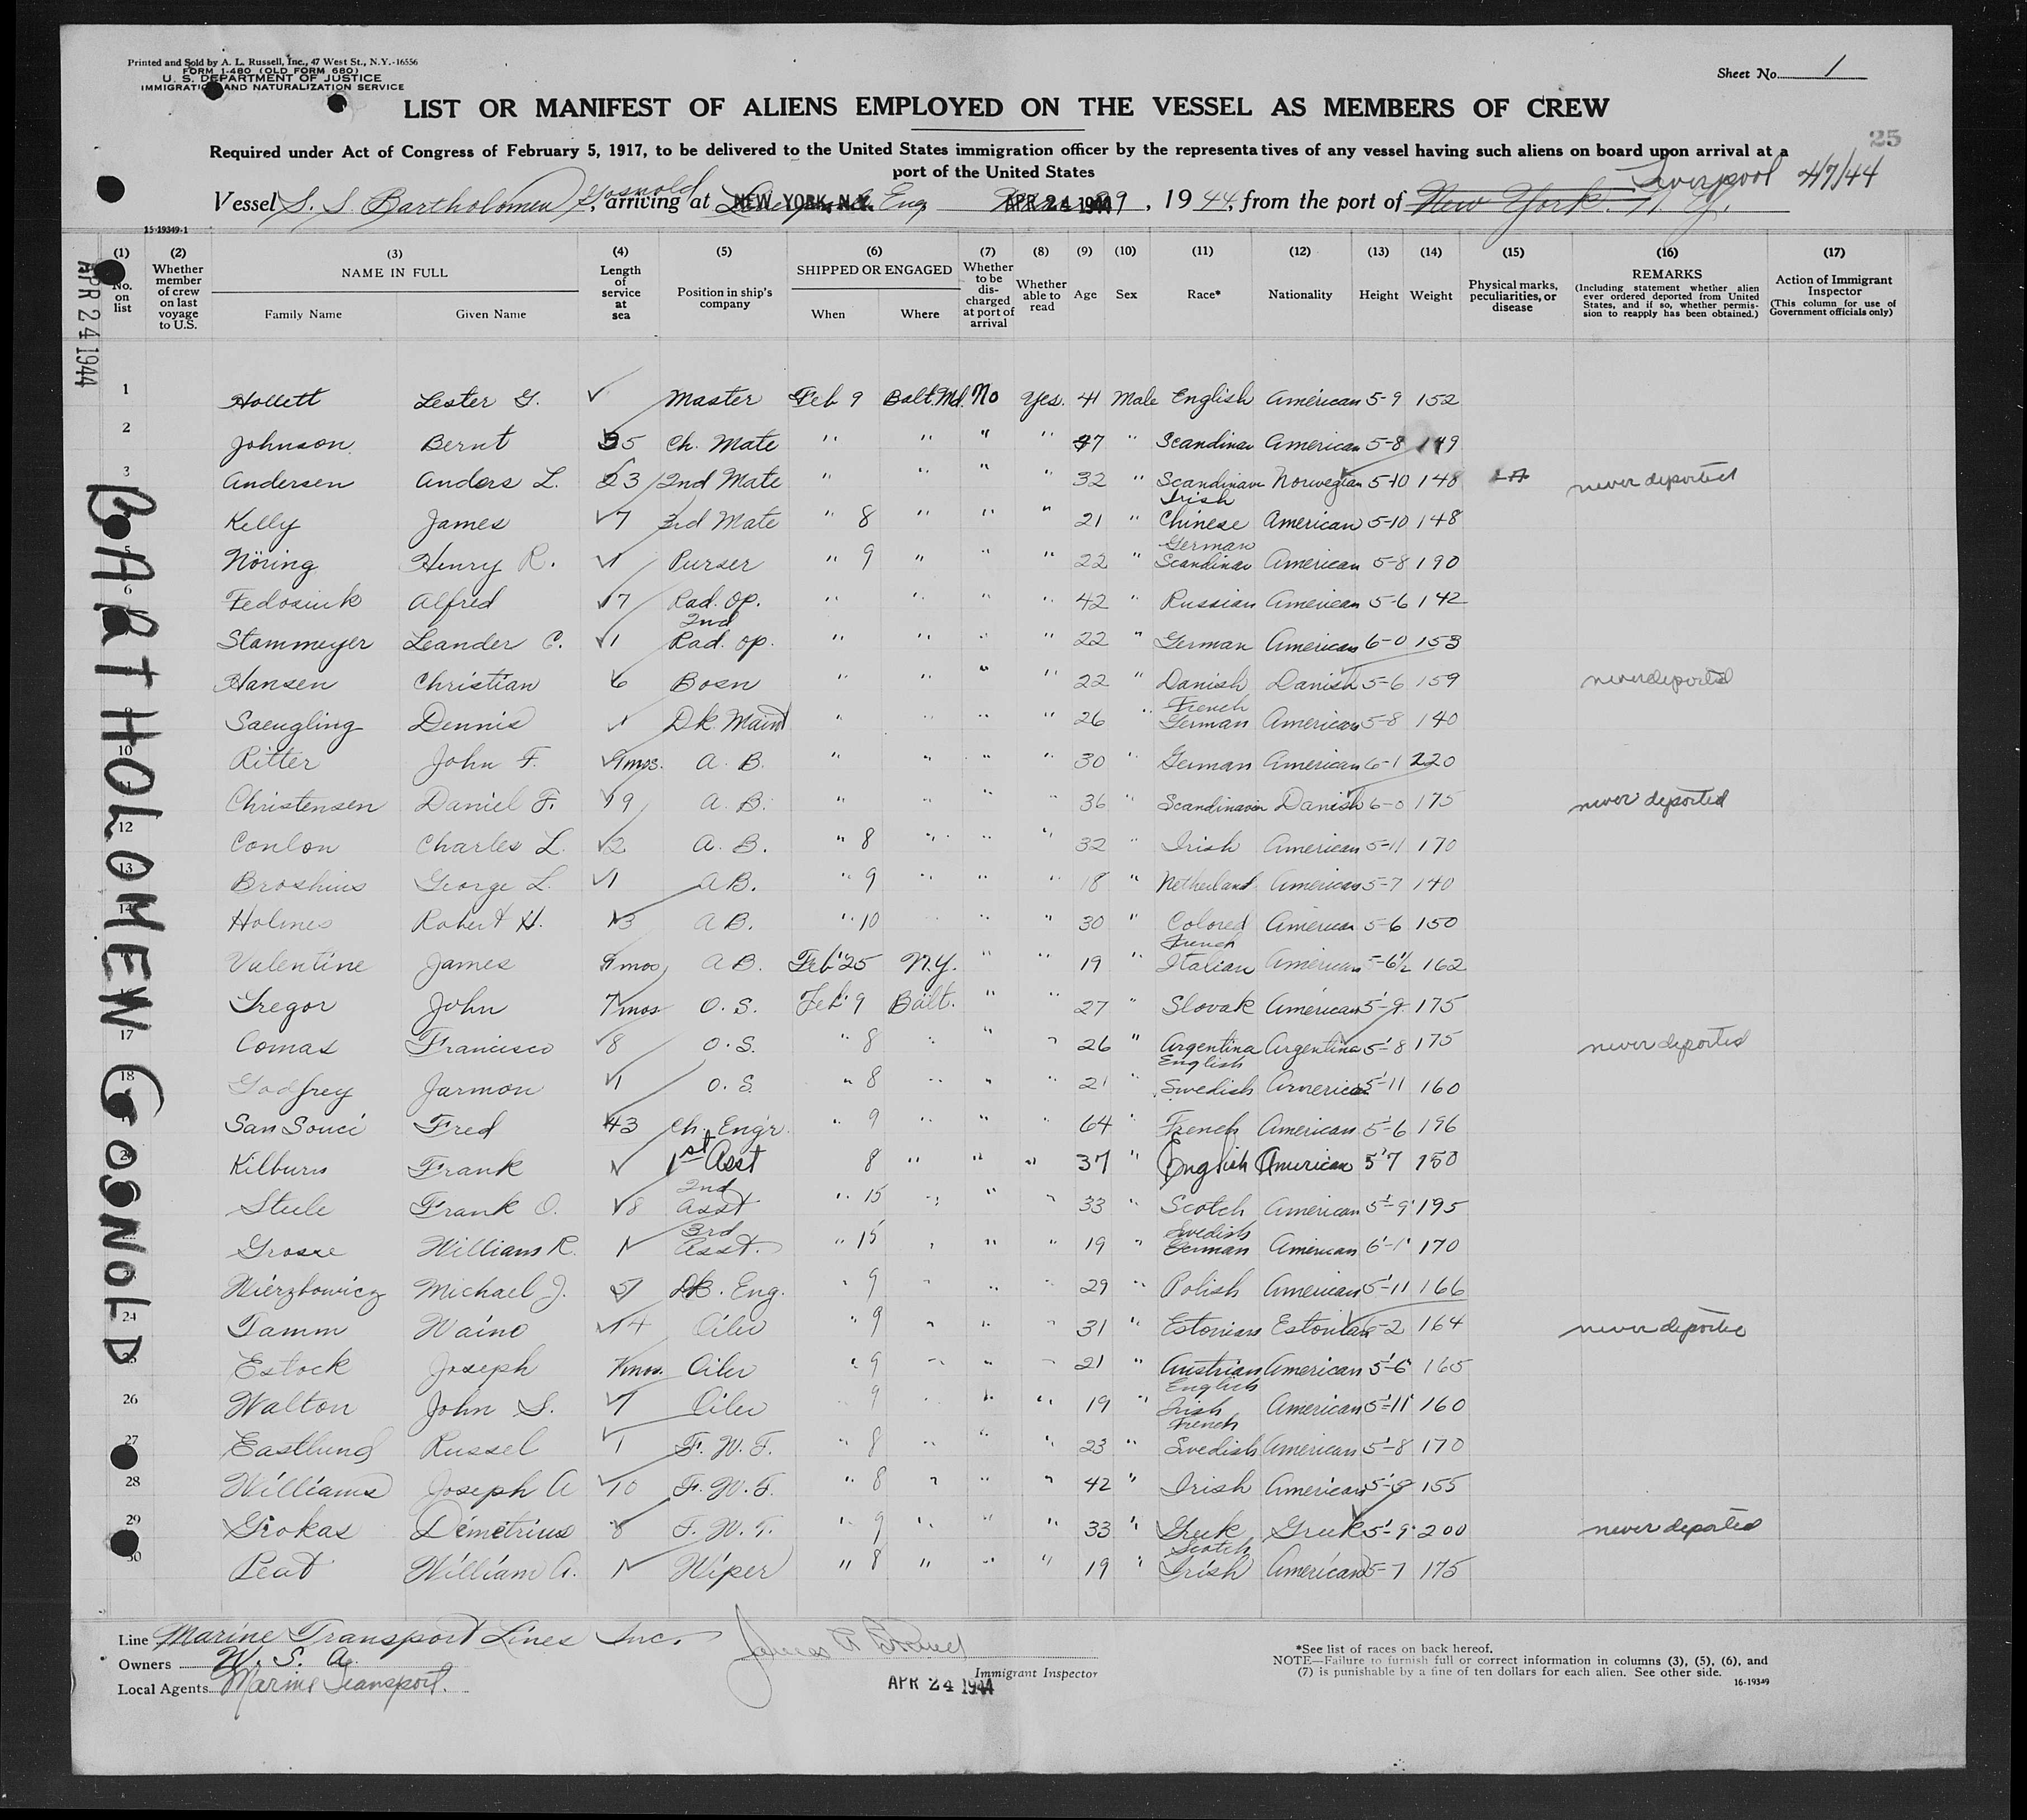 Printed and Sold by A. L. Russell, Inc., 47 West St., N.Y.-16556
FORM I-480 (OLD FORM 680)
U. S. DEPARTMENT OF JUSTICE
IMMIGRATION AND NATURALIZATION SERVICE
Sheet No. 1
LIST OR MANIFEST OF ALIENS EMPLOYED ON THE VESSEL AS MEMBERS OF CREW
25
Required under Act of Congress of February 5, 1917, to be delivered to the United States immigration officer by the representatives of any vessel having such aliens on board upon arrival at a
port of the United States
Liverpool 4/7/44
Vessel S. S. Bartholomew Gosnold, arriving at NEW YORK, N.Y. Eng APR 24 1944 29, 1944, from the port of New York. N. Y.
15-19349-1
APR 24 1944
BARTHOLOMEW GOSNOLD
(1) No. on list
(2) Whether member of crew on last voyage to U.S.
(3) NAME IN FULL Family Name Given Name
(4) Length of service at sea
(5) Position in ship's company
(6) SHIPPED OR ENGAGED When Where
(7) Whether to be discharged at port of arrival
(8) Whether able to read
(9) Age
(10) Sex
(11) Race*
(12) Nationality
(13) Height
(14) Weight
(15) Physical marks, peculiarities, or disease
(16) REMARKS (Including statement whether alien ever ordered deported from United States, and if so, whether permission to reapply has been obtained.)
(17) Action of Immigrant Inspector (This column for use of Government officials only)
1 Hollett Lester G. Master Feb 9 Balt. Md. No Yes. 41 Male English American 5-9 152
2 Johnson Bernt 35 Ch. Mate " " " " 47 " Scandinav American 5-8 149
3 Andersen Anders L. 23 2nd Mate " " " " 32 " Scandinavn Norwegian 5-10 148 never deported
Kelly James 7 3rd Mate " 8 " " " 21 " Irish Chinese American 5-10 148
5 Nöring Henry R. 1 Purser " 9 " " " 22 " German Scandinav American 5-8 190
6 Fedosiuk Alfred 7 Rad. Op. " " " " 42 " Russian American 5-6 142
Stammeyer Leander C. 1 2nd Rad. op. " " " " 22 " German American 6-0 153
Hansen Christian 6 Bosn " " " " 22 " Danish Danish 5-6 159 never deported
Saengling Dennis Dk Maint " " " " 26 " French German American 5-8 140
10 Ritter John F. 9 mos. A. B. " " " " 30 " German American 6-1 220
Christensen Daniel F. 19 A. B. " " " " 36 " Scandinavn Danish 6-0 175 never deported
12 Conlon Charles L. 2 A. B. " 8 " " " 32 " Irish American 5-11 170
13 Broshius George L. 1 A B. " 9 " " " 18 " Netherland American 5-7 140
14 Holmes Robert H. 3 A B. " 10 " " 30 " Colored American 5-6 150
Valentine James 9 mos A B. Feb 25 N.Y. " " 19 " French Italian American 5-6½ 162
Gregor John 7 mos O. S. Feb 9 Balt. " " 27 " Slovak American 5-9 175
17 Comas Francisco 8 O. S. " 8 " " " 26 " Argentina Argentina 5-8 175 never deported
18 Godfrey Jarmon 1 O. S. " 8 " " " 21 " English Swedish American 5-11 160
San Souci Fred 43 Ch. Engr. " 9 " " " 64 " French American 5-6 196
20 Kilburn Frank 1st Asst 8 " " " 37 " English American 5'7 150
Steele Frank O. 8 2nd Asst " 15 " " " 33 " Scotch American 5'-9" 195
Grosse William R. 3rd Asst. " 15 " " " 19 " Swedish German American 6'-1" 170
Wierzbowicz Michael J. 5 Dk. Eng. " 9 " " 29 " Polish American 5'-11 166
24 Tamm Waino 14 Oiler " 9 " " " 31 " Estonian Estonian 6-2 164 never deported
25 Estock Joseph 7 mos. Oiler " 9 " " " 21 " Austrian American 5'-6" 165
26 Walton John S. Oiler 9 " " " 19 " English Irish American 5'-11" 160
27 Eastlund Russel 1 F. W. T. " 8 " " " 23 " French Swedish American 5'-8 170
28 Williams Joseph A 10 F. W. T. " 8 " " " 42 " Irish American 155
29 Grokas Demetrius 8 F. W. T. " 9 " " " 33 " Greek Greek 5'-9" 200 never deported
30 Peat William A. Wiper " 8 " " " 19 " Scotch Irish American 5-7 175
Line Marine Transport Lines Inc.
Owners W. S. A.
Local Agents Marine Transport.
Immigrant Inspector
APR 24 1944
*See list of races on back hereof.
NOTE—Failure to furnish full or correct information in columns (3), (5), (6), and
(7) is punishable by a fine of ten dollars for each alien. See other side.
16-19349